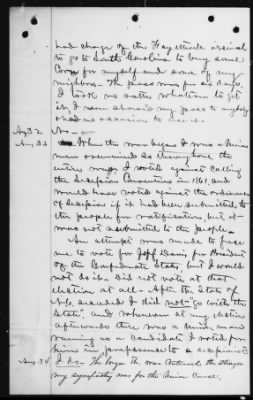 had charge of the Fayetteville arsenal
to go to South Carolina to buy some
Corn for myself and some of my
neighbors. The pass was for six days.
I took no oath whatever to get
it, I never showed my pass to anybody
& had no occasion to use it.
Ans 32 No —
Ans 33 When the war began I was a Union
man over mind as strong love the
entire war, I voted against calling
the Secession Convention in 1861, and
would have voted against the ordinance
of Secession if it had been submitted to
the people for ratification, but it
was not submitted to the people.
An attempt was made to force
me to vote for Jeff Davis for President
of the Confederate States, but I would
not do it & did not vote at that
election at all. After the State of
N.C. seceded I did not "go with the
State", and whenever at any election
afterwards there was a Union man
running as a candidate I voted for
him in preference to a secessionist
Ans 34 I do. The longer the war continued the stronger
my sympathy was for the Union Cause.